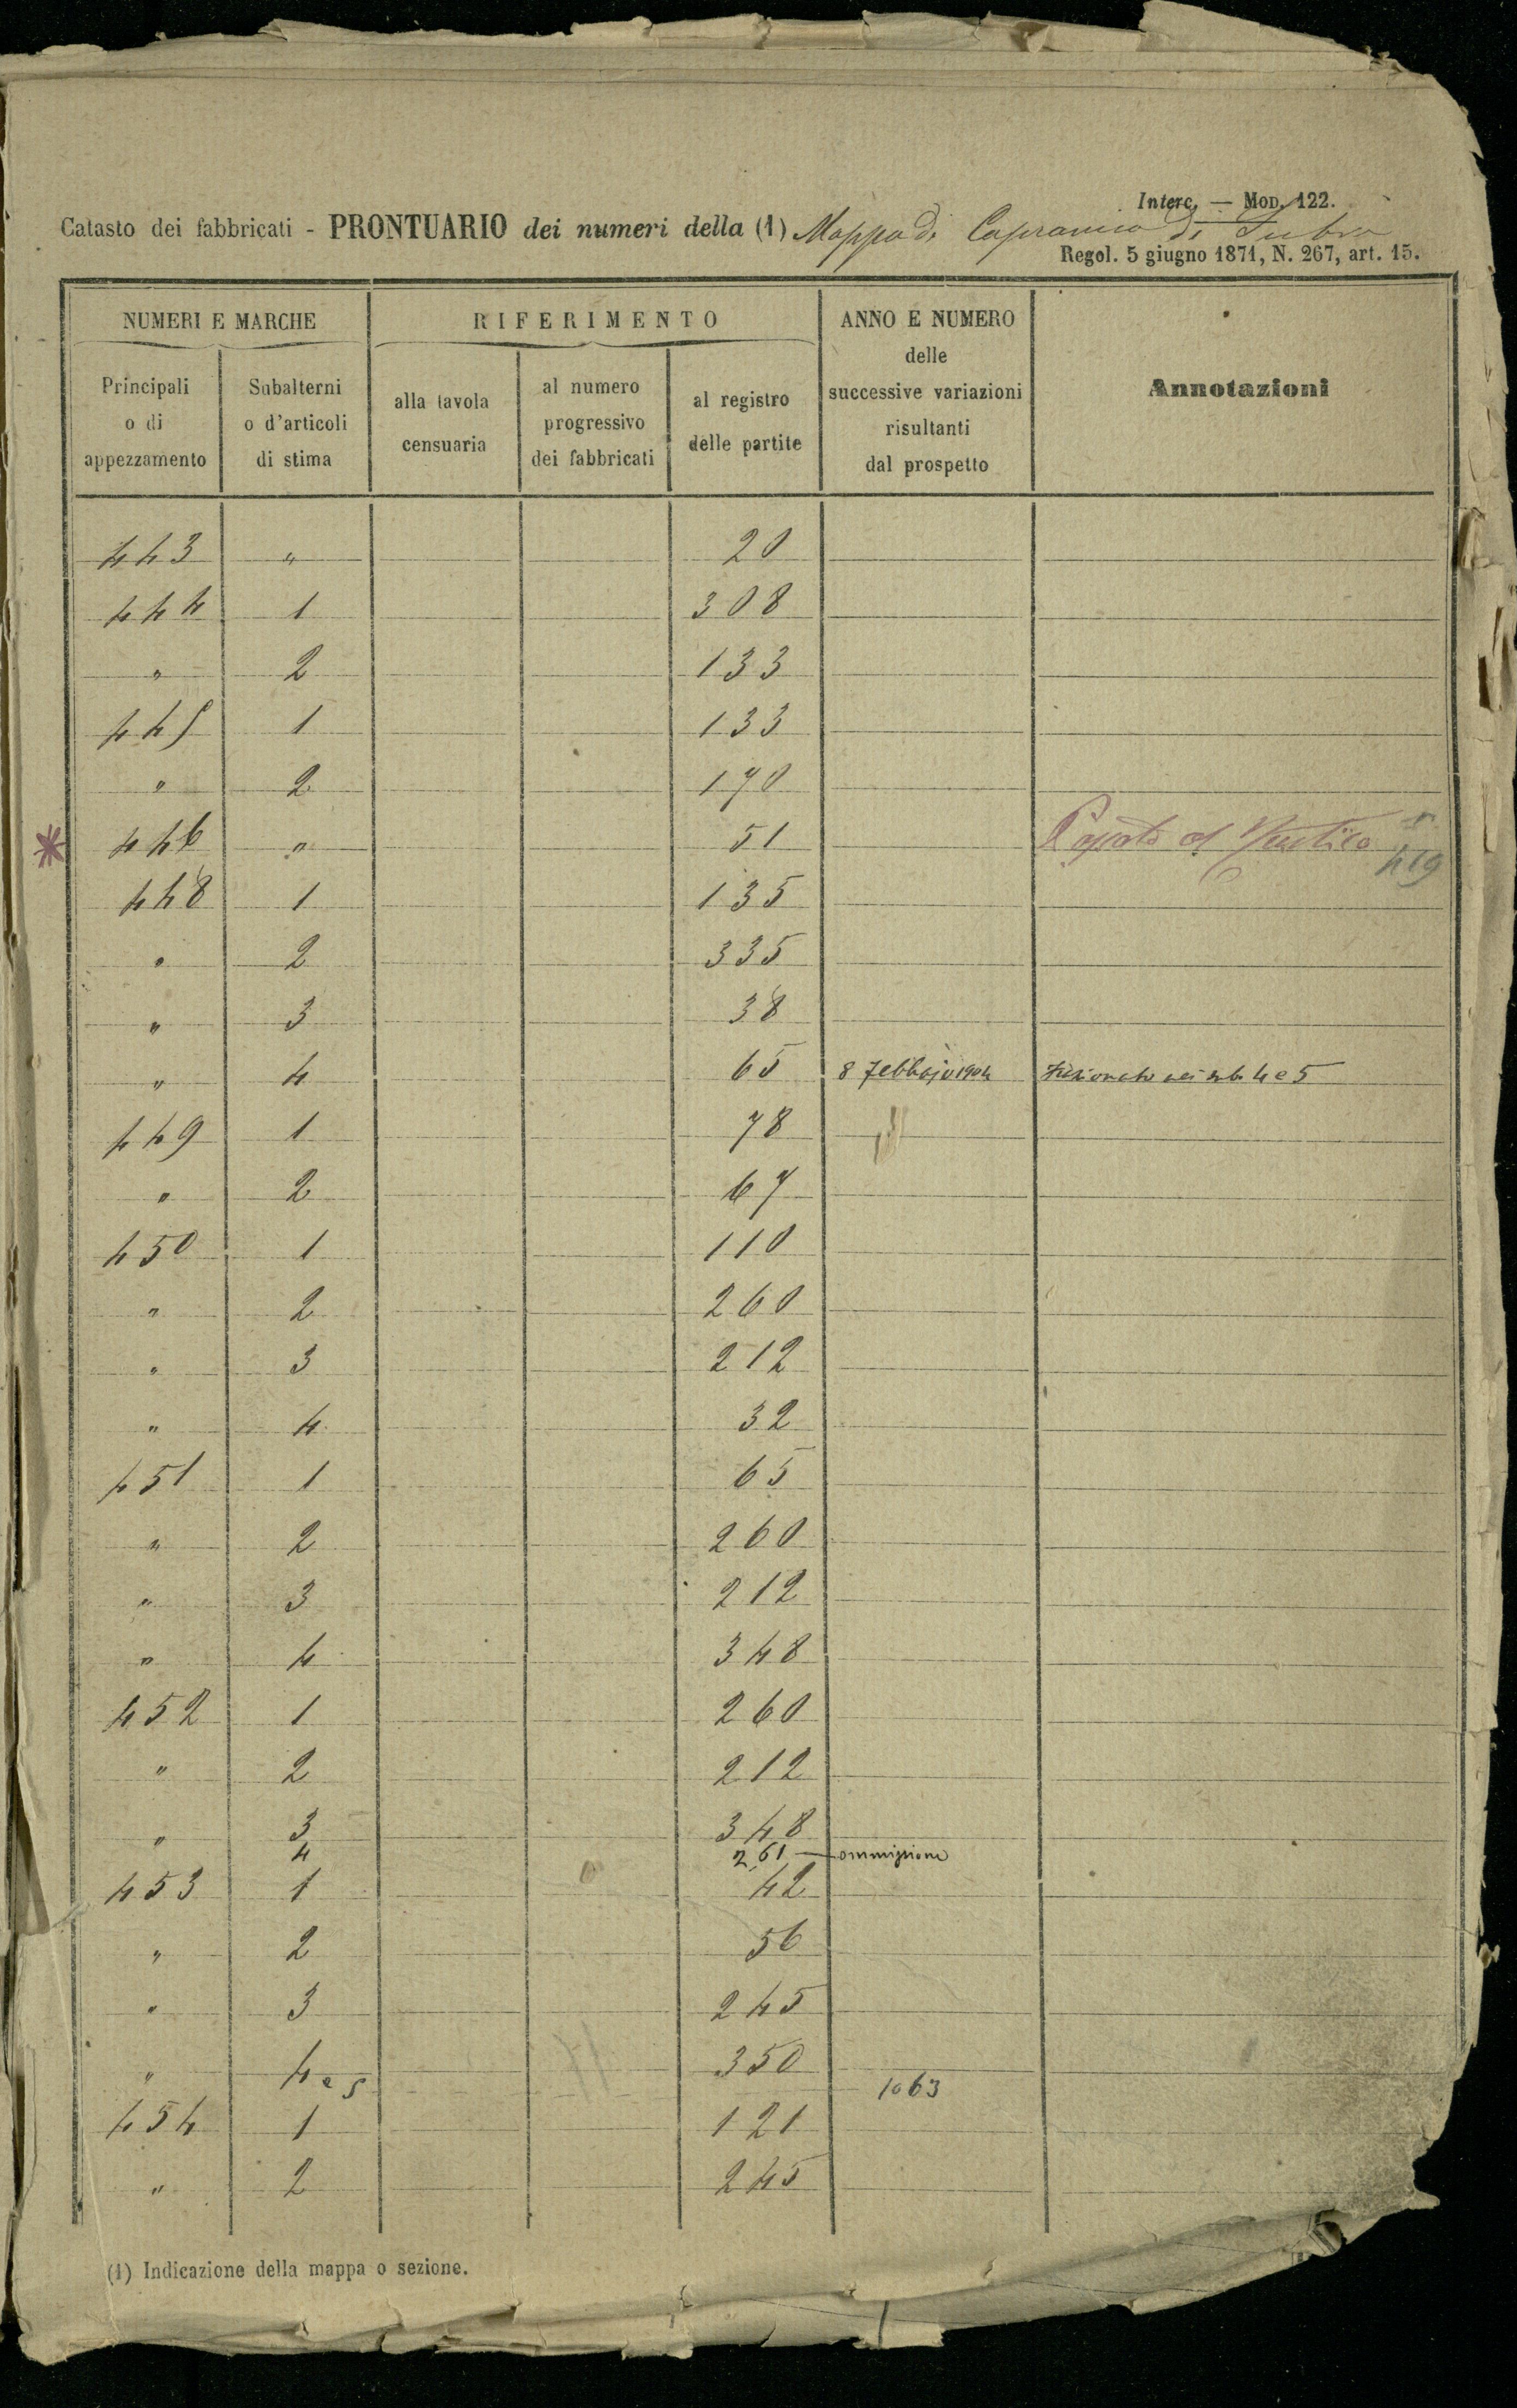 Interc. — Mod. 122.
Catasto dei fabbricati - PRONTUARIO dei numeri della (1) Mappa di Capranica di
Regol. 5 giugno 1871, N. 267, art. 15.
NUMERI E MARCHE RIFERIMENTO ANNO E NUMERO delle successive variazioni risultanti dal prospetto Annotazioni
Principali o di appezzamento Subalterni o d'articoli di stima alla tavola censuaria al numero progressivo dei fabbricati al registro delle partite
443 " 20
444 1 308
" 2 133
445 1 133
" 2 170
* 446 " 51 419
448 1 135
" 2 335
" 3 38
" 4 65 8 Febbrajo 1904 4 e 5
449 1 78
" 2 67
450 1 110
" 2 260
" 3 212
" 4 32
451 1 65
" 2 260
" 3 212
" 4 348
452 1 260
" 2 212
" 3 348
4 261 — ommissione
453 1 42
" 2 56
" 3 245
" 4 e 5 350
1063
454 1 121
" 2 245
(1) Indicazione della mappa o sezione.